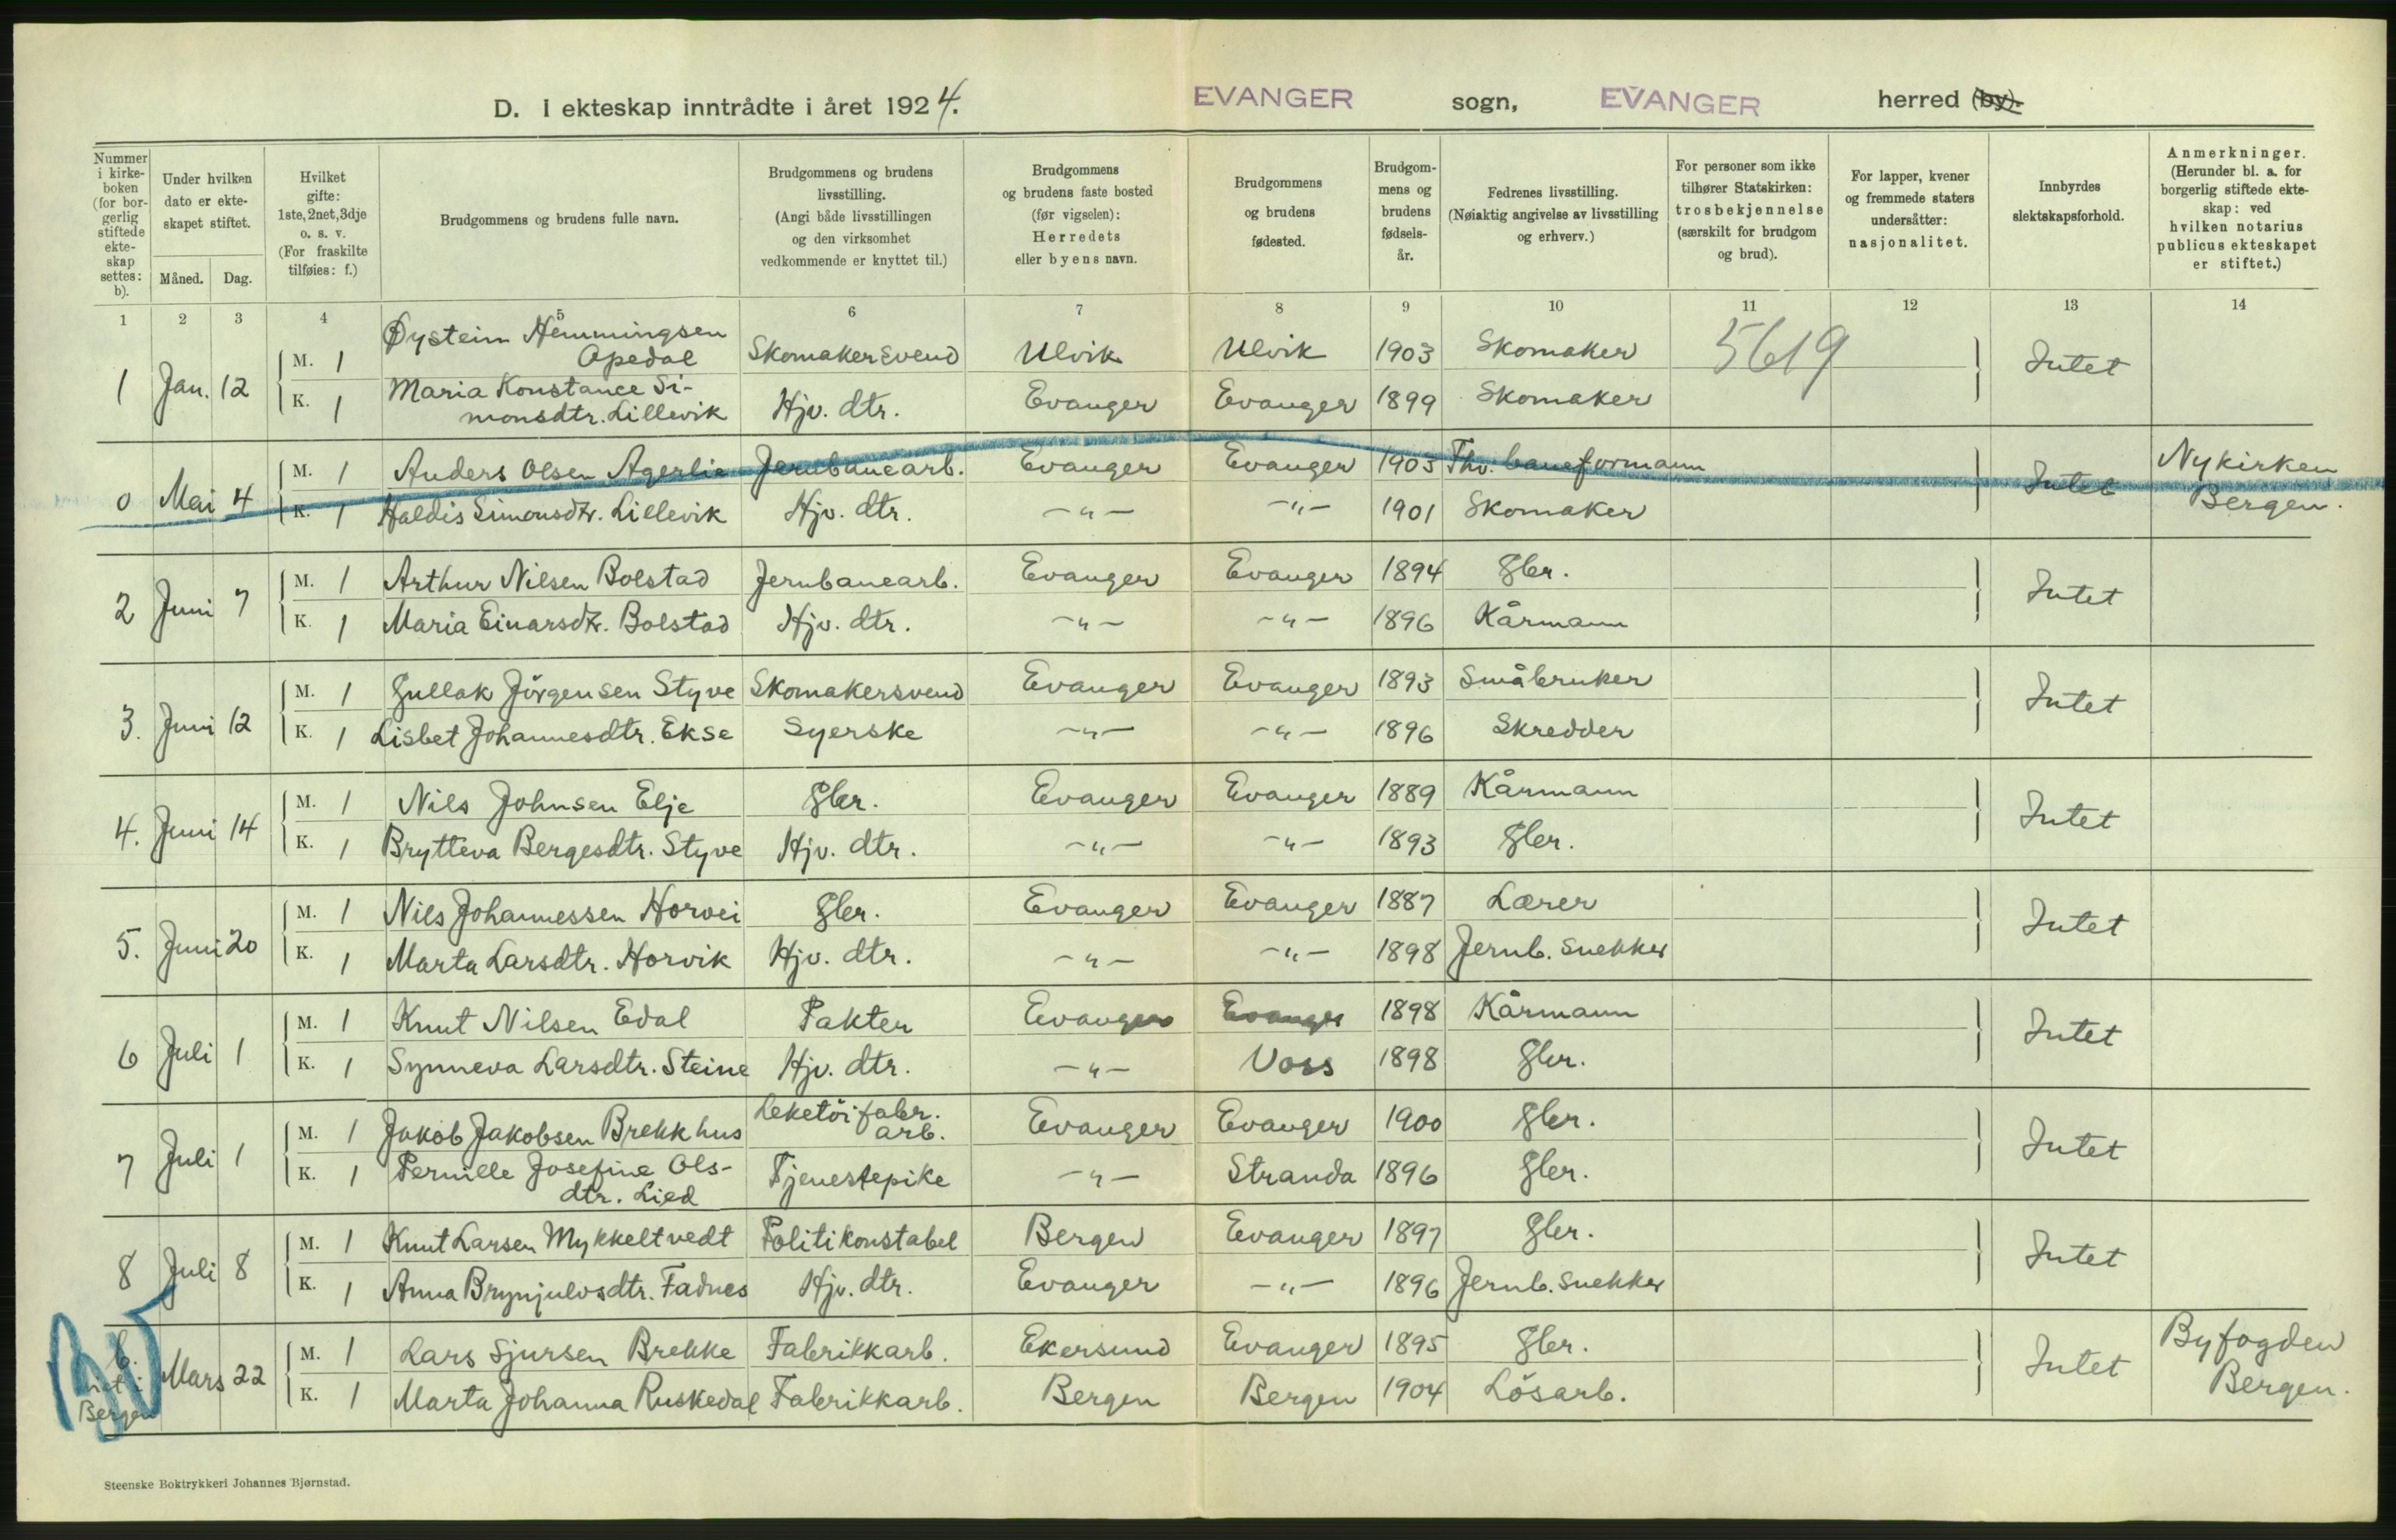 D. I ekteskap inntrådte i året 1924. EVANGER sogn, EVANGER herred (by).
Nummer i kirkeboken (for borgerlig stiftede ekteskap settes: b).
Under hvilken dato er ekteskapet stiftet.
Måned. Dag.
Hvilket gifte: 1ste, 2net, 3dje o. s. v. (For fraskilte tilføies: f.)
Brudgommens og brudens fulle navn.
Brudgommens og brudens livsstilling. (Angi både livsstillingen og den virksomhet vedkommende er knyttet til.)
Brudgommens og brudens faste bosted (før vigselen): Herredets eller byens navn.
Brudgommens og brudens fødested.
Brudgommens og brudens fødselsår.
Fedrenes livsstilling. (Nøiaktig angivelse av livsstilling og erhverv.)
For personer som ikke tilhører Statskirken: trosbekjennelse (særskilt for brudgom og brud).
For lapper, kvener og fremmede staters undersåtter: nasjonalitet.
Innbyrdes slektskapsforhold.
Anmerkninger. (Herunder bl. a. for borgerlig stiftede ekteskap: ved hvilken notarius publicus ekteskapet er stiftet.)
1 2 3 4 5 6 7 8 9 10 11 12 13 14
1 Jan. 12 M. 1 Øystein Hemmingsen Apedal Skomakersvend Ulvik Ulvik 1903 Skomaker 5619 Intet
K. 1 Maria Konstance Simonsdtr. Lillevik Hjv. dtr. Evanger Evanger 1899 Skomaker
0 Mai 4 M. 1 Anders Olsen Agerlie Jernbanearb. Evanger Evanger 1903 Fhv. baneformann Intet Nykirken
K. 1 Haldis Simonsdtr. Lillevik Hjv. dtr. -"- -"- 1901 Skomaker Bergen.
2 Juni 7 M. 1 Arthur Nilsen Bolstad Jernbanearb. Evanger Evanger 1894 Gbr. Intet
K. 1 Maria Einarsdtr. Bolstad Hjv. dtr. -"- -"- 1896 Kårmann
3. Juni 12 M. 1 Gullak Jörgensen Styve Skomakersvend Evanger Evanger 1893 Småbruker Intet
K. 1 Lisbet Johannesdtr. Ekse Syerske -"- -"- 1896 Skredder
4. Juni 14 M. 1 Nils Johnsen Elje Gbr. Evanger Evanger 1889 Kårmann Intet
K. 1 Brytteva Bergesdtr. Styve Hjv. dtr. -"- -"- 1893 Gbr.
5. Juni 20 M. 1 Nils Johannessen Horvei Gbr. Evanger Evanger 1887 Lærer Intet
K. 1 Marta Larsdtr. Horvik Hjv. dtr. -"- -"- 1898 Jernb. snekker
6 Juli 1 M. 1 Knut Nilsen Edal Pakter Evanger Evanger 1898 Kårmann Intet
K. 1 Synneva Larsdtr. Steine Hjv. dtr. -"- Voss 1898 Gbr.
7 Juli 1 M. 1 Jakob Jakobsen Brekkhus Leketöifabr. arb. Evanger Evanger 1900 Gbr. Intet
K. 1 Pernille Josefine Olsdtr. Lied Tjenestepike -"- Stranda 1896 Gbr.
8 Juli 8 M. 1 Knut Larsen Mykkeltvedt Politikonstabel Bergen Evanger 1897 Gbr. Intet
K. 1 Anna Brynjulvsdtr. Fadnes Hjv. dtr. Evanger -"- 1896 Jernb. snekker
b. Bergen Mars 22 M. 1 Lars Sjursen Brekke Fabrikkarb. Ekersund Evanger 1895 Gbr. Intet Byfogden
K. 1 Marta Johanna Ruskedal Fabrikkarb. Bergen Bergen 1904 Lösarb. Bergen.
Steenske Boktrykkeri Johannes Bjørnstad.